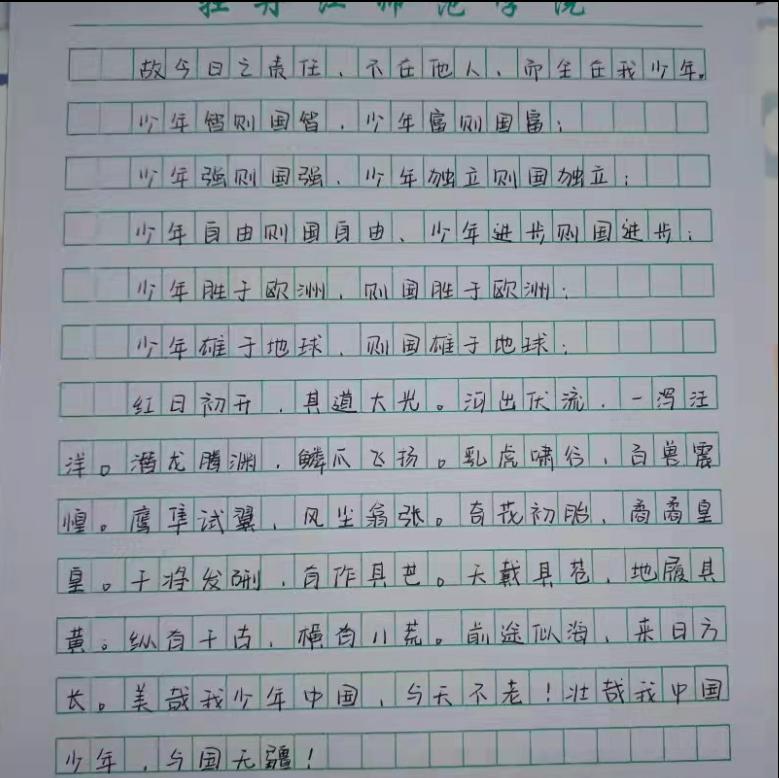 牡丹江师范学院
故今日之责任，不在他人，而全在我少年。
少年智则国智，少年富则国富；
少年强则国强，少年独立则国独立；
少年自由则国自由，少年进步则国进步；
少年胜于欧洲，则国胜于欧洲；
少年雄于地球，则国雄于地球；
红日初升，其道大光。河出伏流，一泻汪
洋。潜龙腾渊，鳞爪飞扬。乳虎啸谷，百兽震
惶。鹰隼试翼，风尘翕张。奇花初胎，矞矞皇
皇。干将发硎，有作其芒。天戴其苍，地履其
黄。纵有千古，横有八荒。前途似海，来日方
长。美哉我少年中国，与天不老！壮哉我中国
少年，与国无疆！